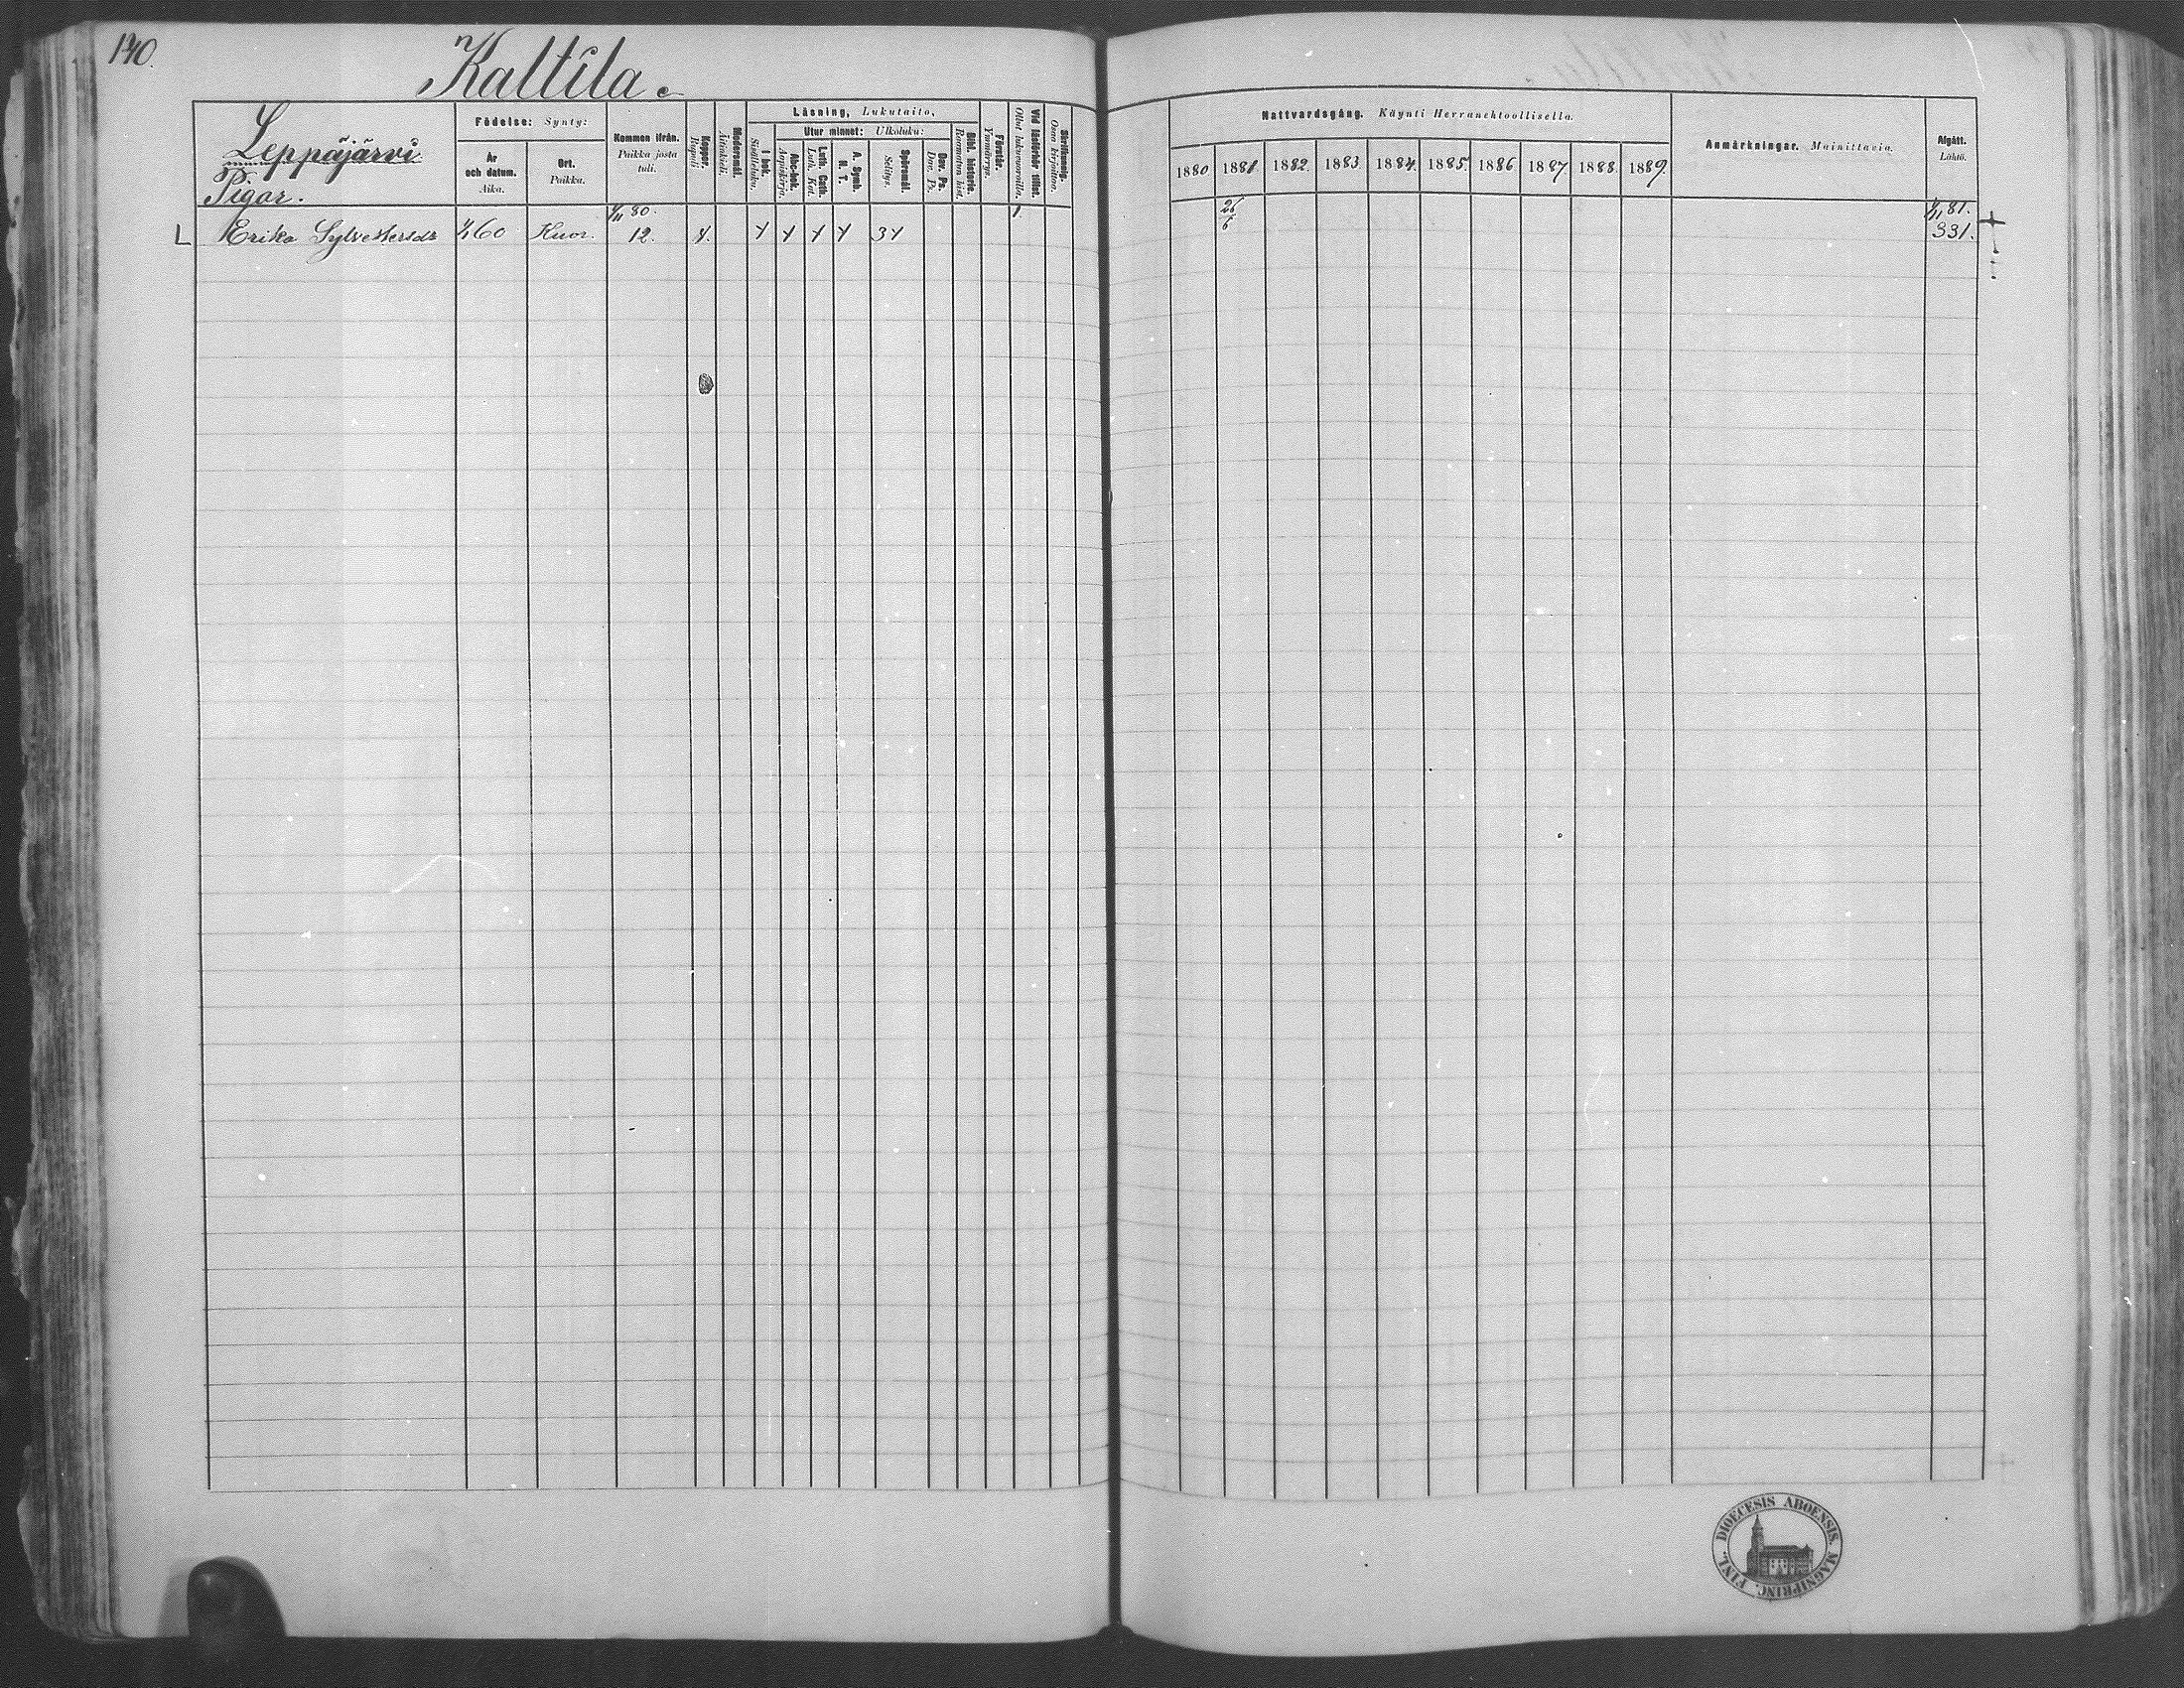 140.
Kaltila.
Leppäjärvi
Pigor.
Födelse: Synty:
År och datum. Aika.
Ort. Paikka.
Kommen ifrån. Paikka josta tuli.
Koppor. Rupuli
Modersmål. Äitinkieli.
Läsning, Lukutaito,
I bok. Sisältäluku.
Utur minnet: Ulkoluku:
Abc-bok. Aapiskirja.
Luth. Cath. Luth. Kat.
A. Symb. H. T.
Spörsmål. Selitys.
Dav. Ps. Dav. Ps.
Bibl. historie. Raamatun hist.
Förstår. Ymmärrys.
Vid läsförhör tillst. Ollut lukuvuoroilla.
Skrifkunnig. Osaa kirjoittaa.
Nattvardsgång. Käynti Herranehtoollisella.
1880 1881 1882 1883 1884 1885 1886 1887 1888 1889
Anmärkningar. Mainittavia.
Afgått. Lähtö.
1/11 80. 1. 26/6 1/11 81.
L Erika Sylvestersdr 60 Kuor. 12. 331.
FINL. DIOECESIS ABOENSIS MAGNIPRINC.